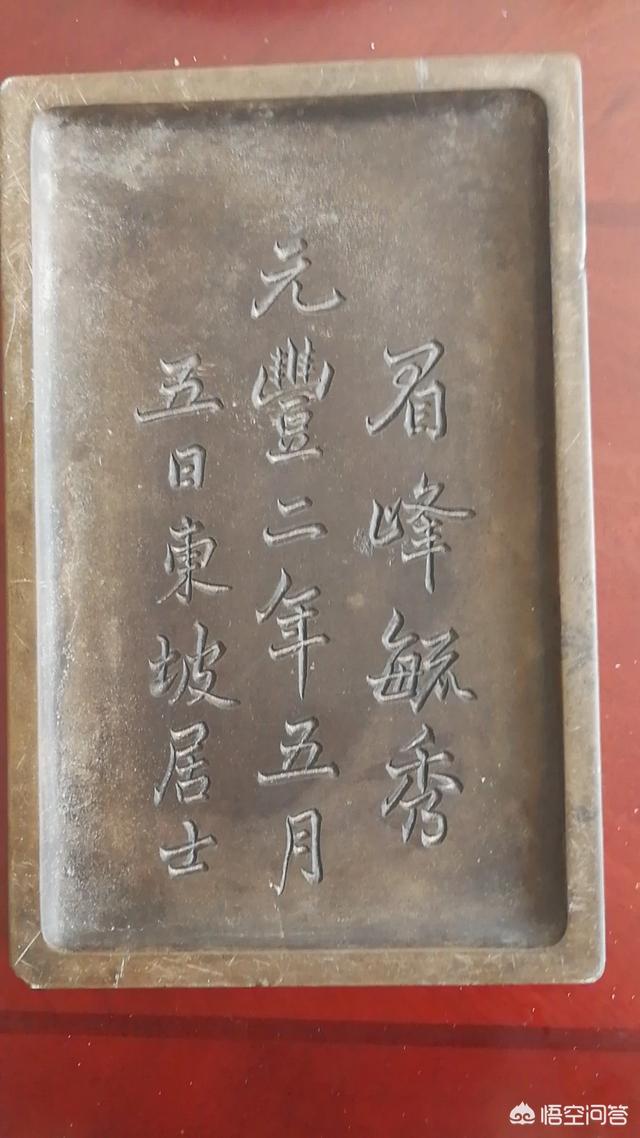 眉峰毓秀
元豐二年五月
五日東坡居士
悟空问答